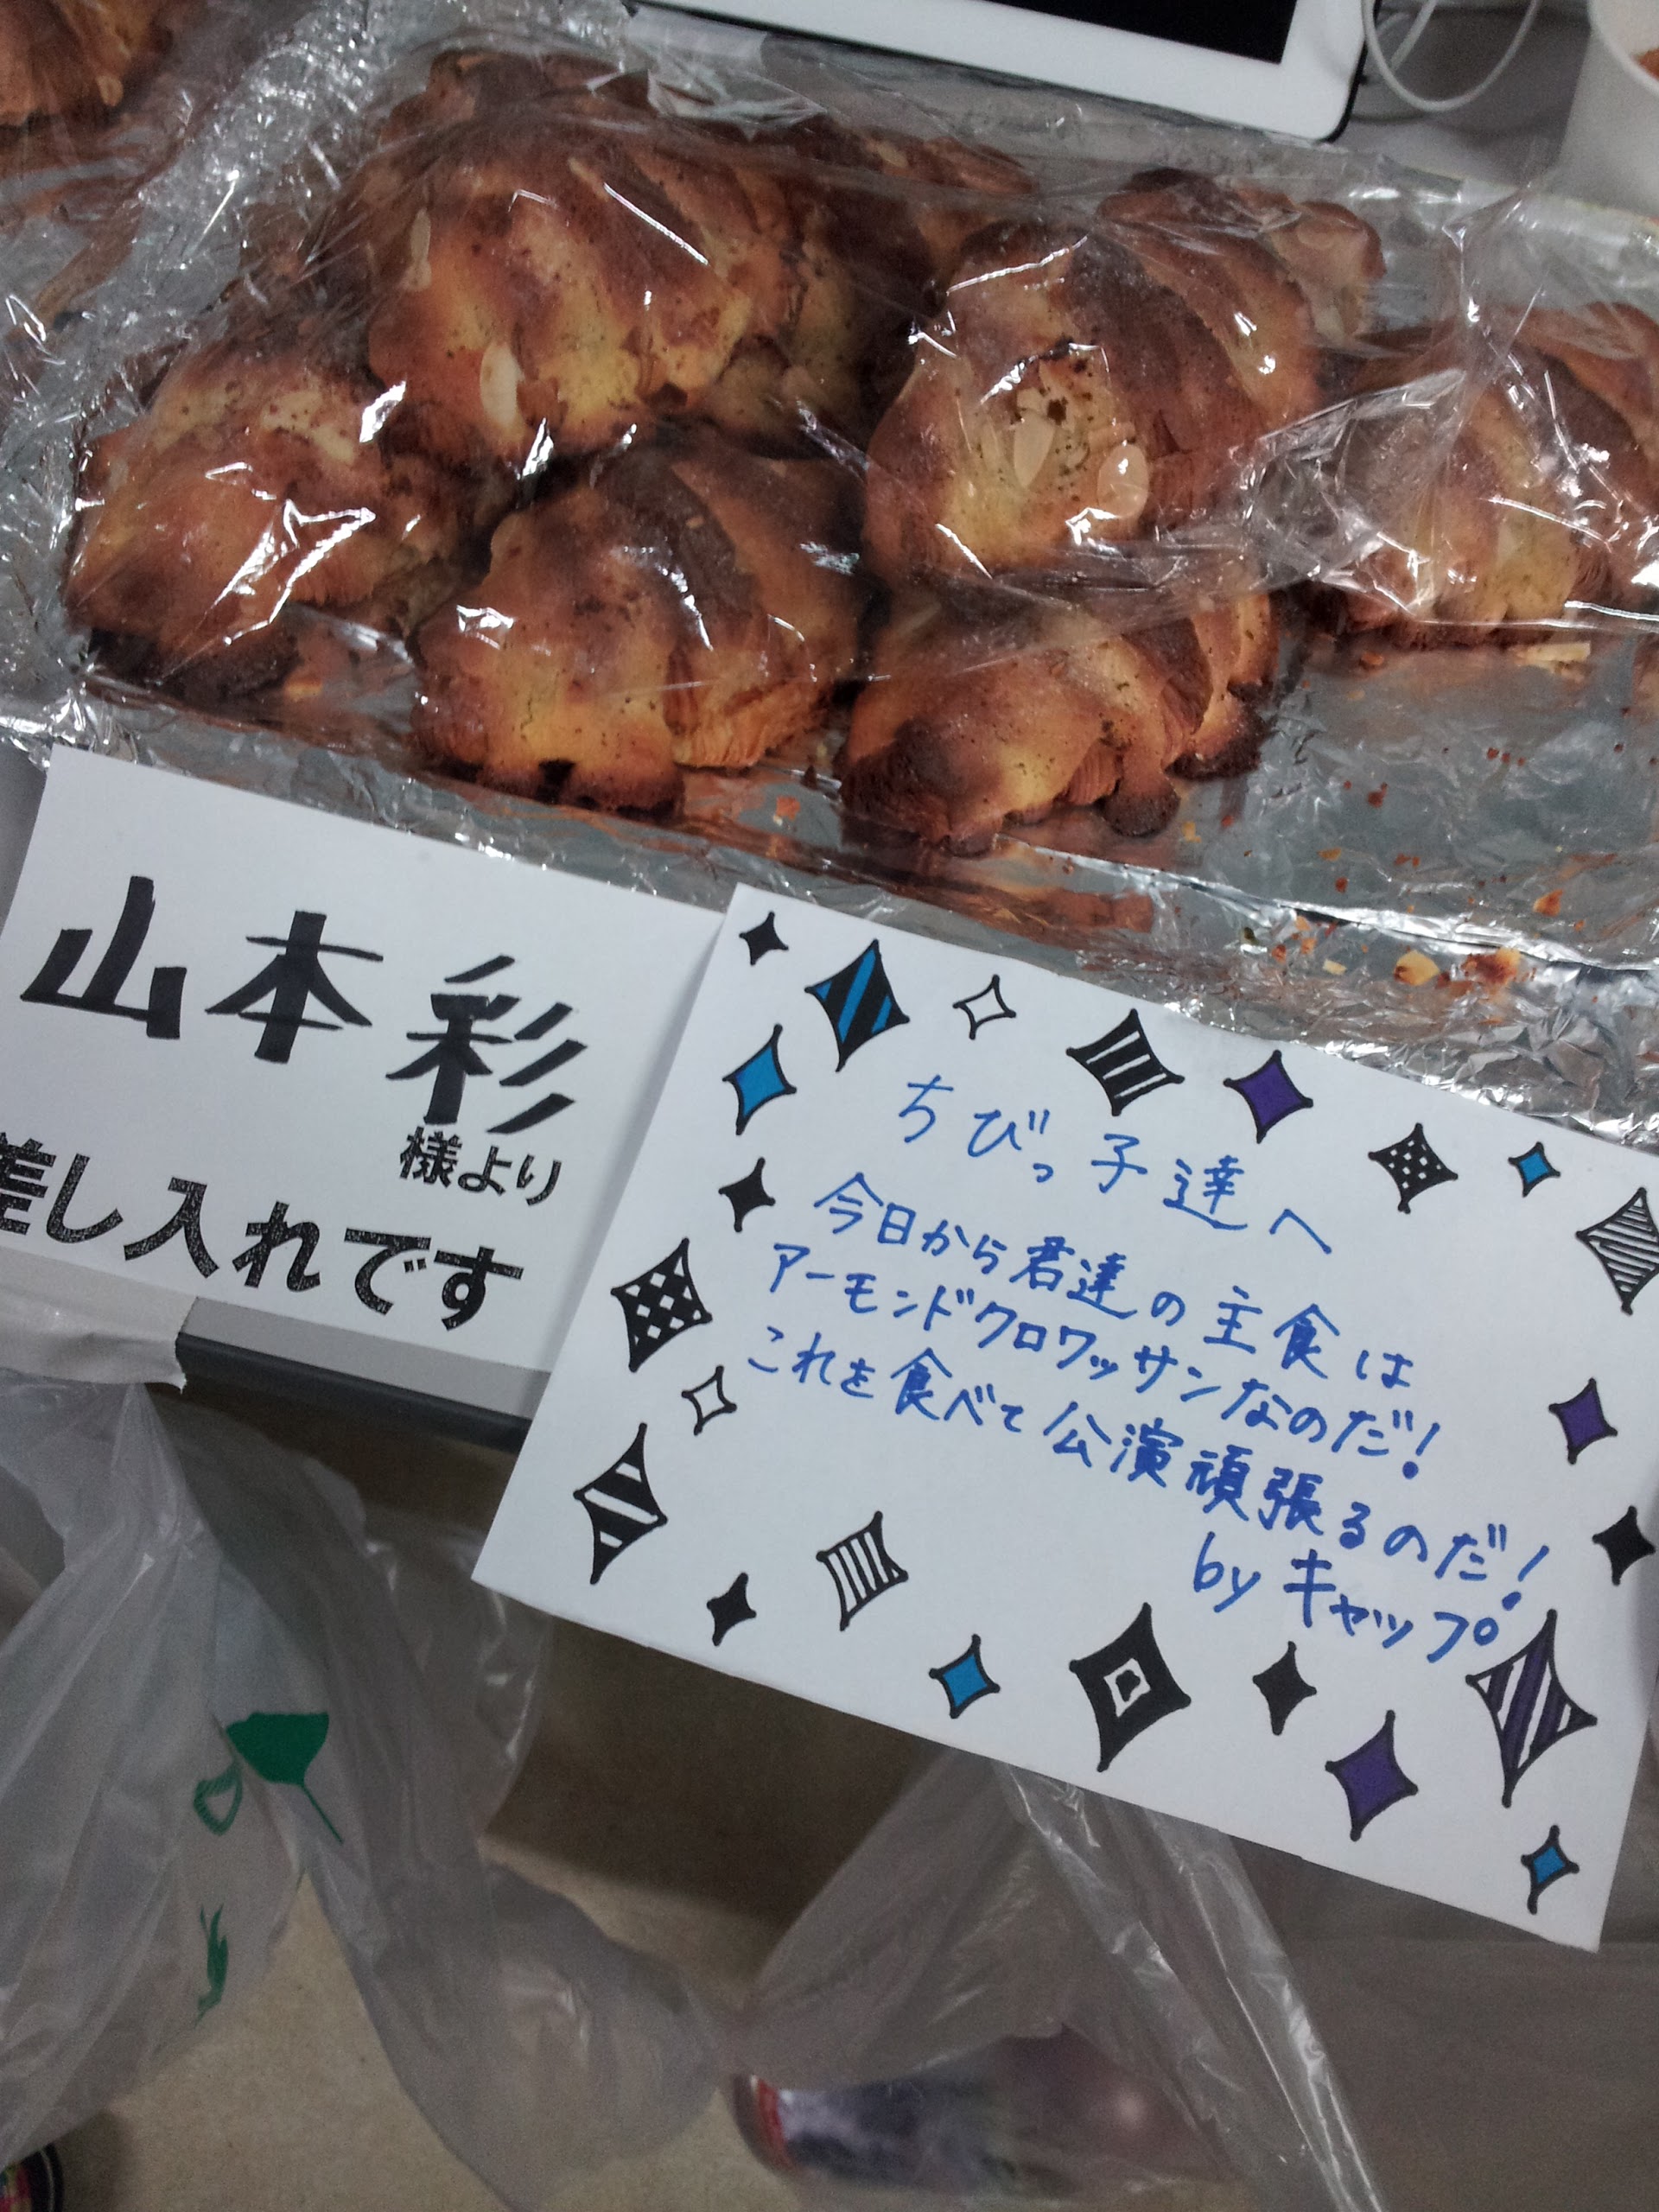 山本彩
様より
差し入れです
ちびっ子達へ
今日から君達の主食は
アーモンドクロワッサンなのだ!
これを食べて公演頑張るのだ!
by キャップ